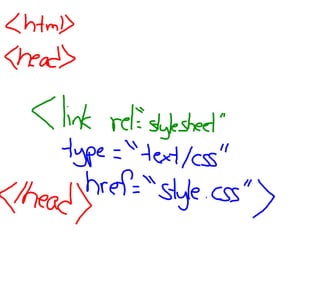 <html>
<head>
<link rel="stylesheet"
type="text/css"
href="style.css">
</head>